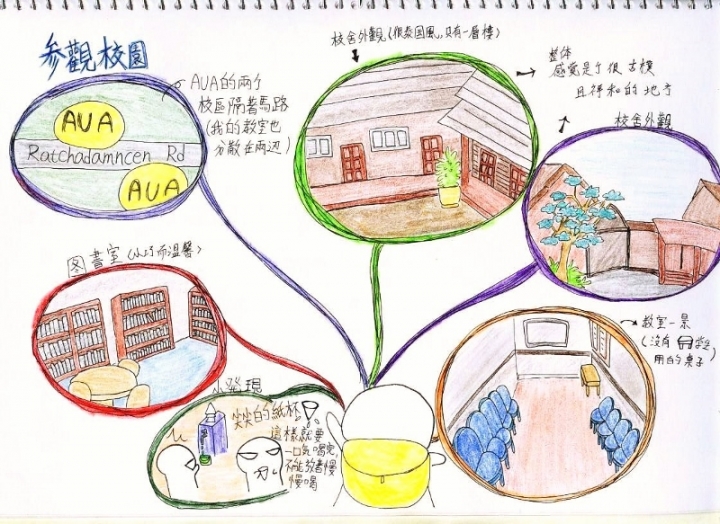 參觀校園
AUA的兩个
校區隔着馬路
(我的教室也
分散在兩辺)
AUA
Ratchadamncen Rd
AUA
校舍外觀(很泰国風,只有一層樓)
整体
感覺是个很古樸
且祥和的地方
校舍外觀
図書室(小巧而溫馨)
教室一景
(沒有
用的桌子)
小發現
尖尖的紙杯
這樣就要
一口気喝完,
不能放着慢
慢喝